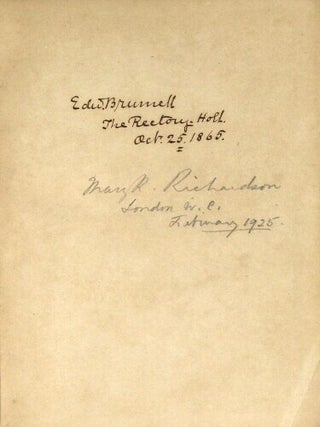 Edw. Brumell
The Rectory - Holt.
Oct. 25. 1865.
Mary R. Richardson
London W. C.
February 1925.